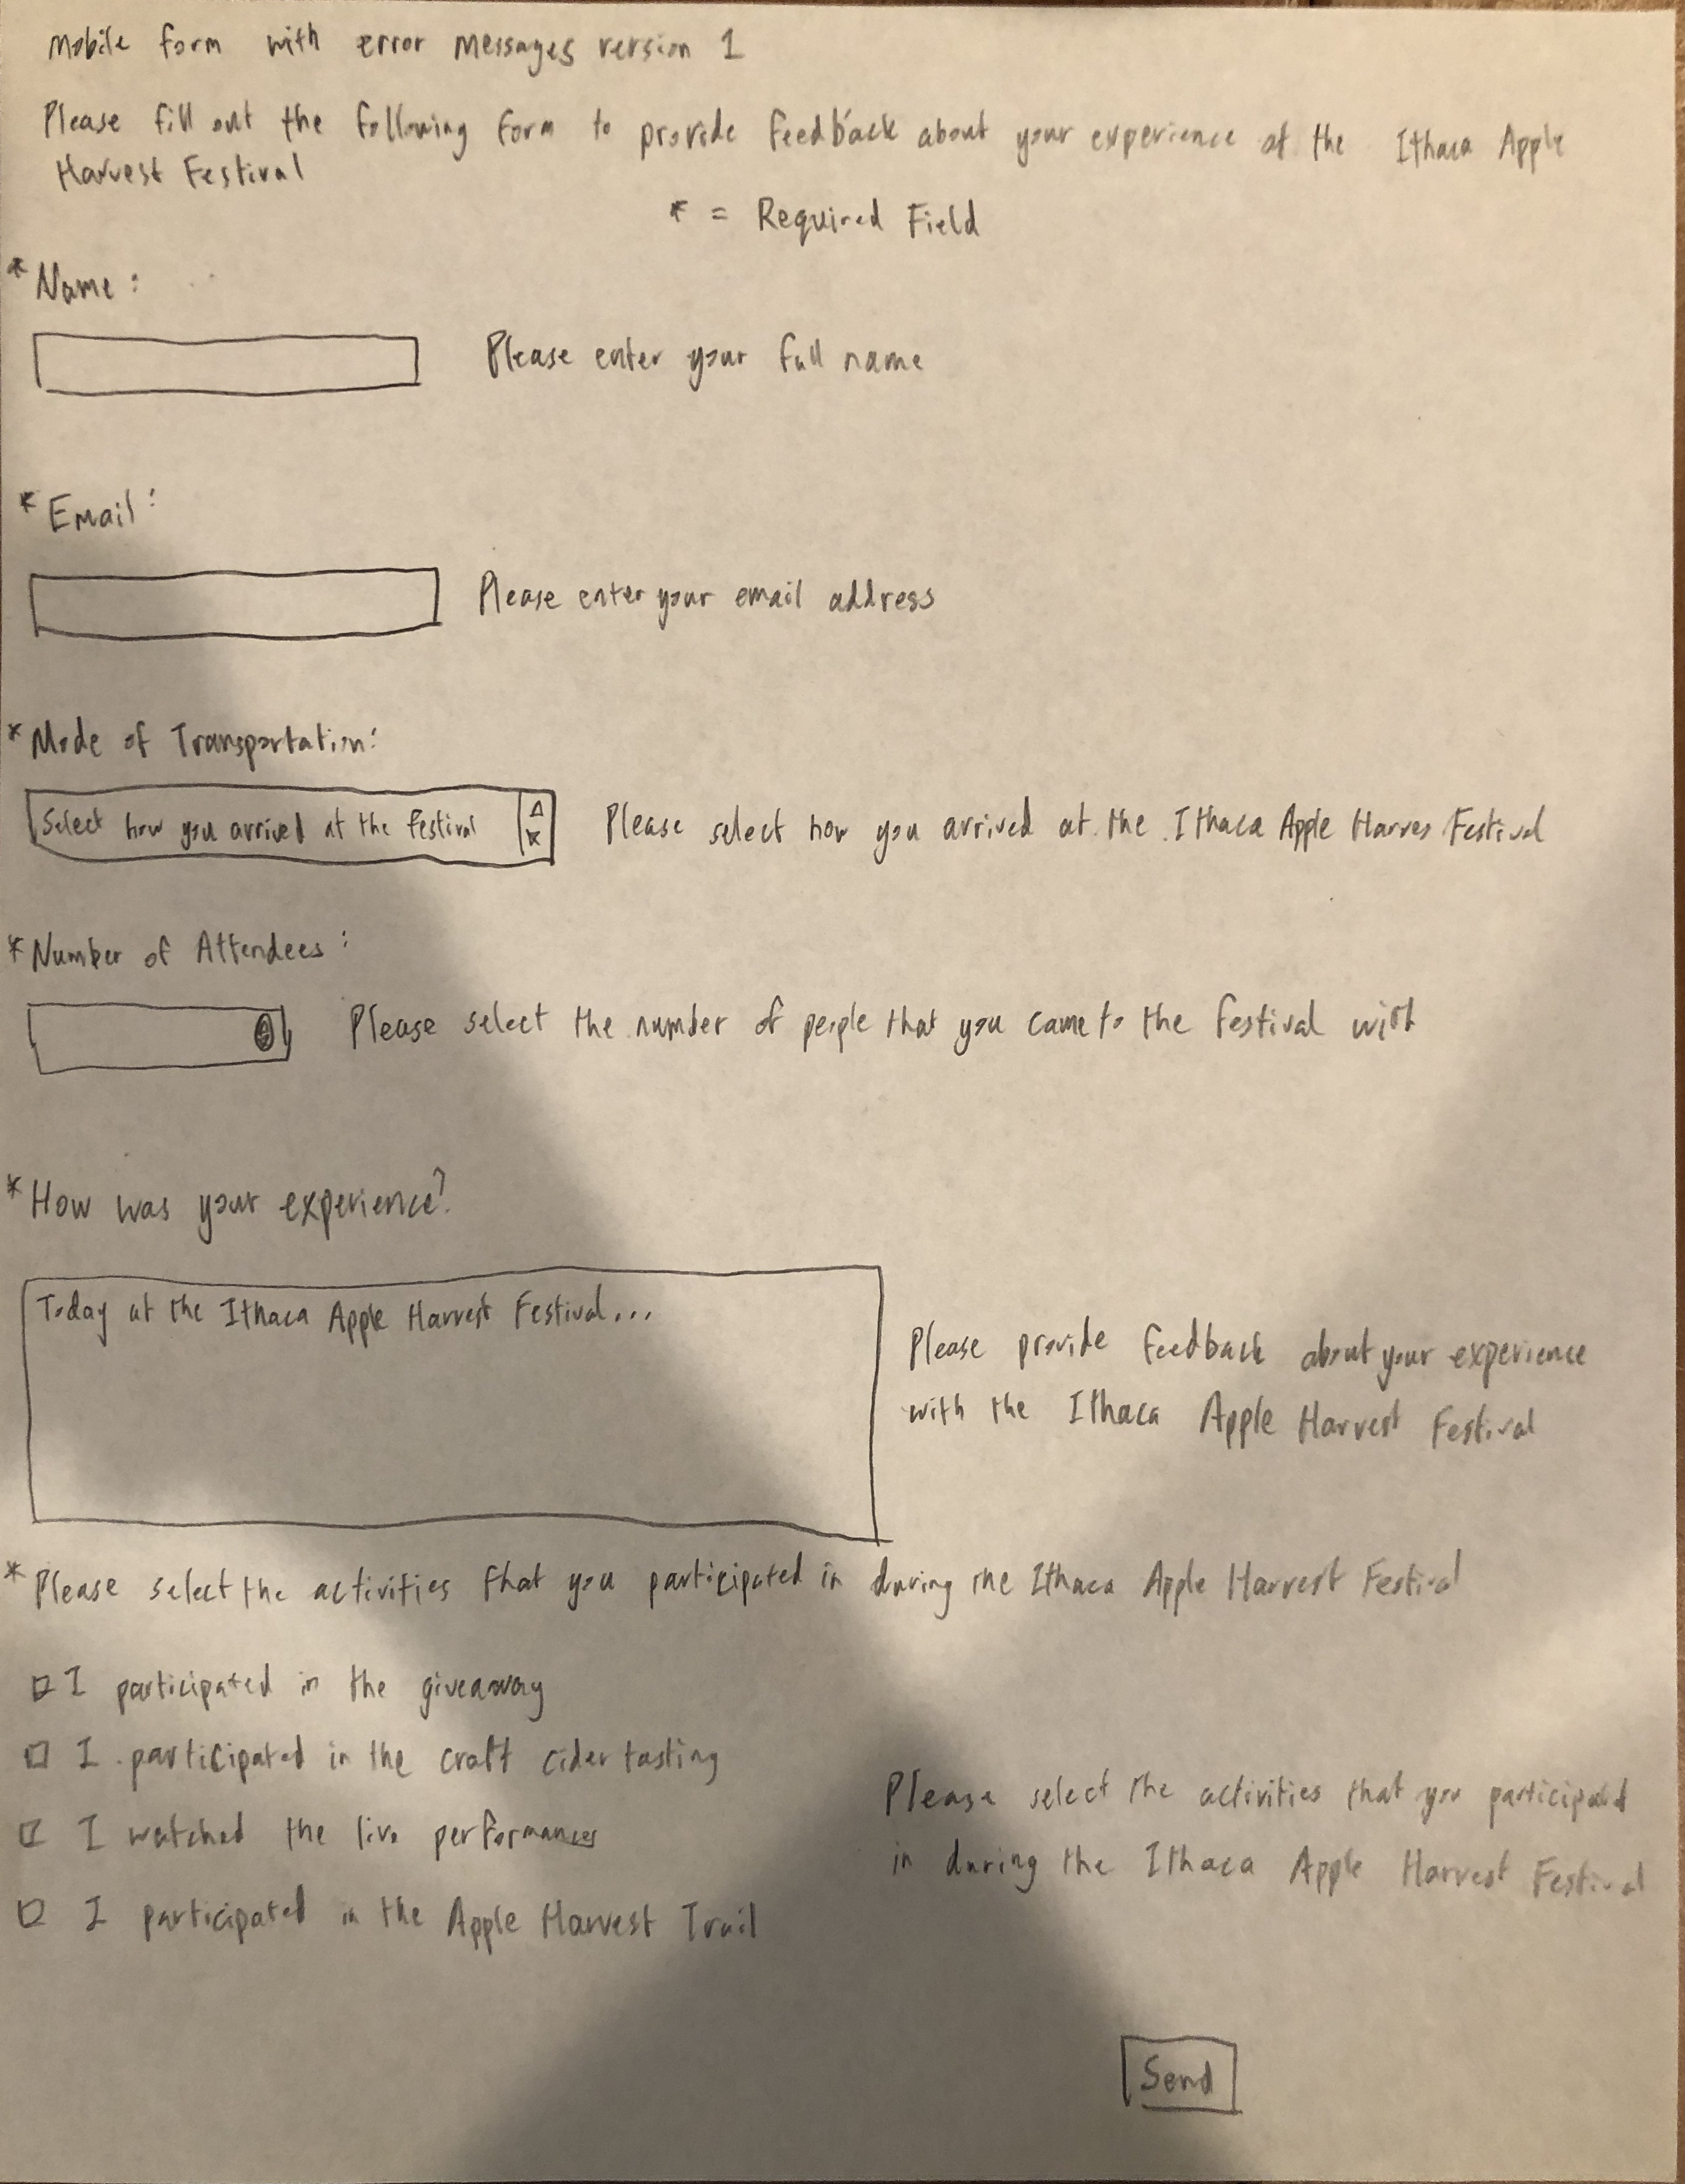 Mobile form with error messages version 1
Please fill out the following form to provide feedback about your experience at the Ithaca Apple
Harvest Festival
* = Required Field
*Name:
Please enter your full name
*Email:
Please enter your email address
*Mode of Transportation:
Select how you arrived at the festival
Please select how you arrived at the Ithaca Apple Harves Festival
*Number of Attendees:
Please select the number of people that you came to the festival with
*How was your experience?
Today at the Ithaca Apple Harvest Festival...
Please provide feedback about your experience
with the Ithaca Apple Harvest Festival
*Please select the activities that you participated in during the Ithaca Apple Harvest Festival
I participated in the giveaway
I participated in the craft cider tasting
I watched the live performances
I participated in the Apple Harvest Trail
Please select the activities that you participated
in during the Ithaca Apple Harvest Festival
Send